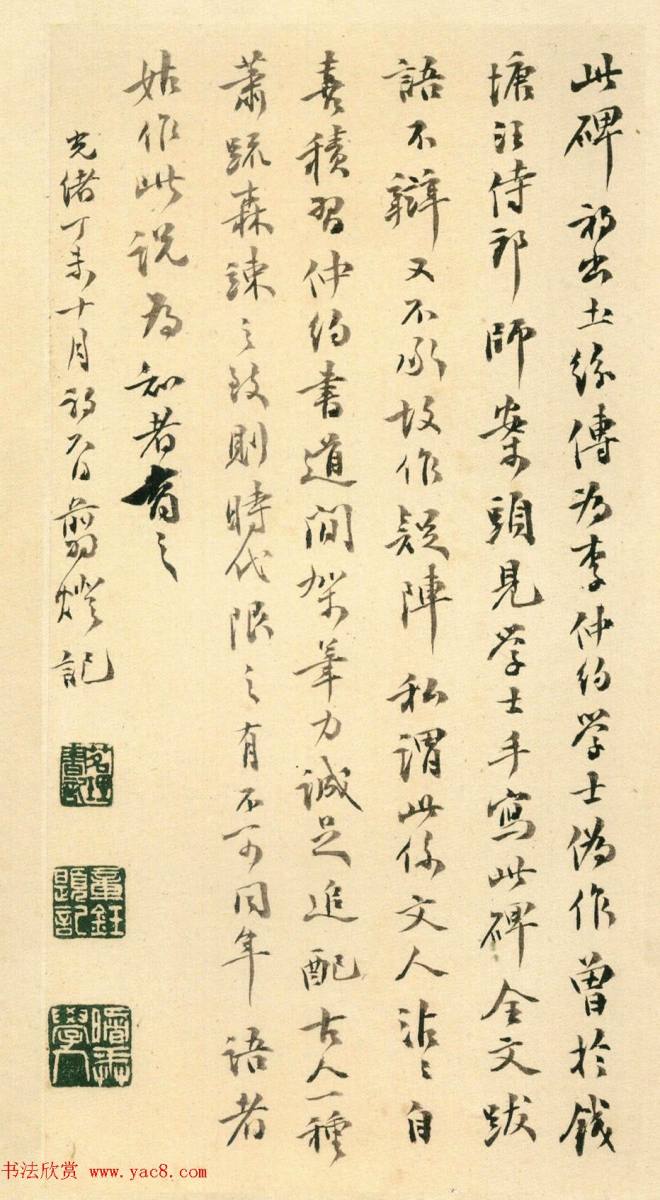 此碑初出土纷傳为李仲约學士偽作曾於錢
塘汪侍郎師案頭見学士手寫此碑全文跋
語不辯又不承故作疑陣私謂此係文人沾沾自
喜積習仲约書道間架筆力誠足追配古人一種
蕭疏森竦之致則時代限之有不可同年語者
姑作此説为知者道之
光緒丁未十月初一日翦燈記
茗理書記
章鈺題記
學人
书法欣赏 www.yac8.com